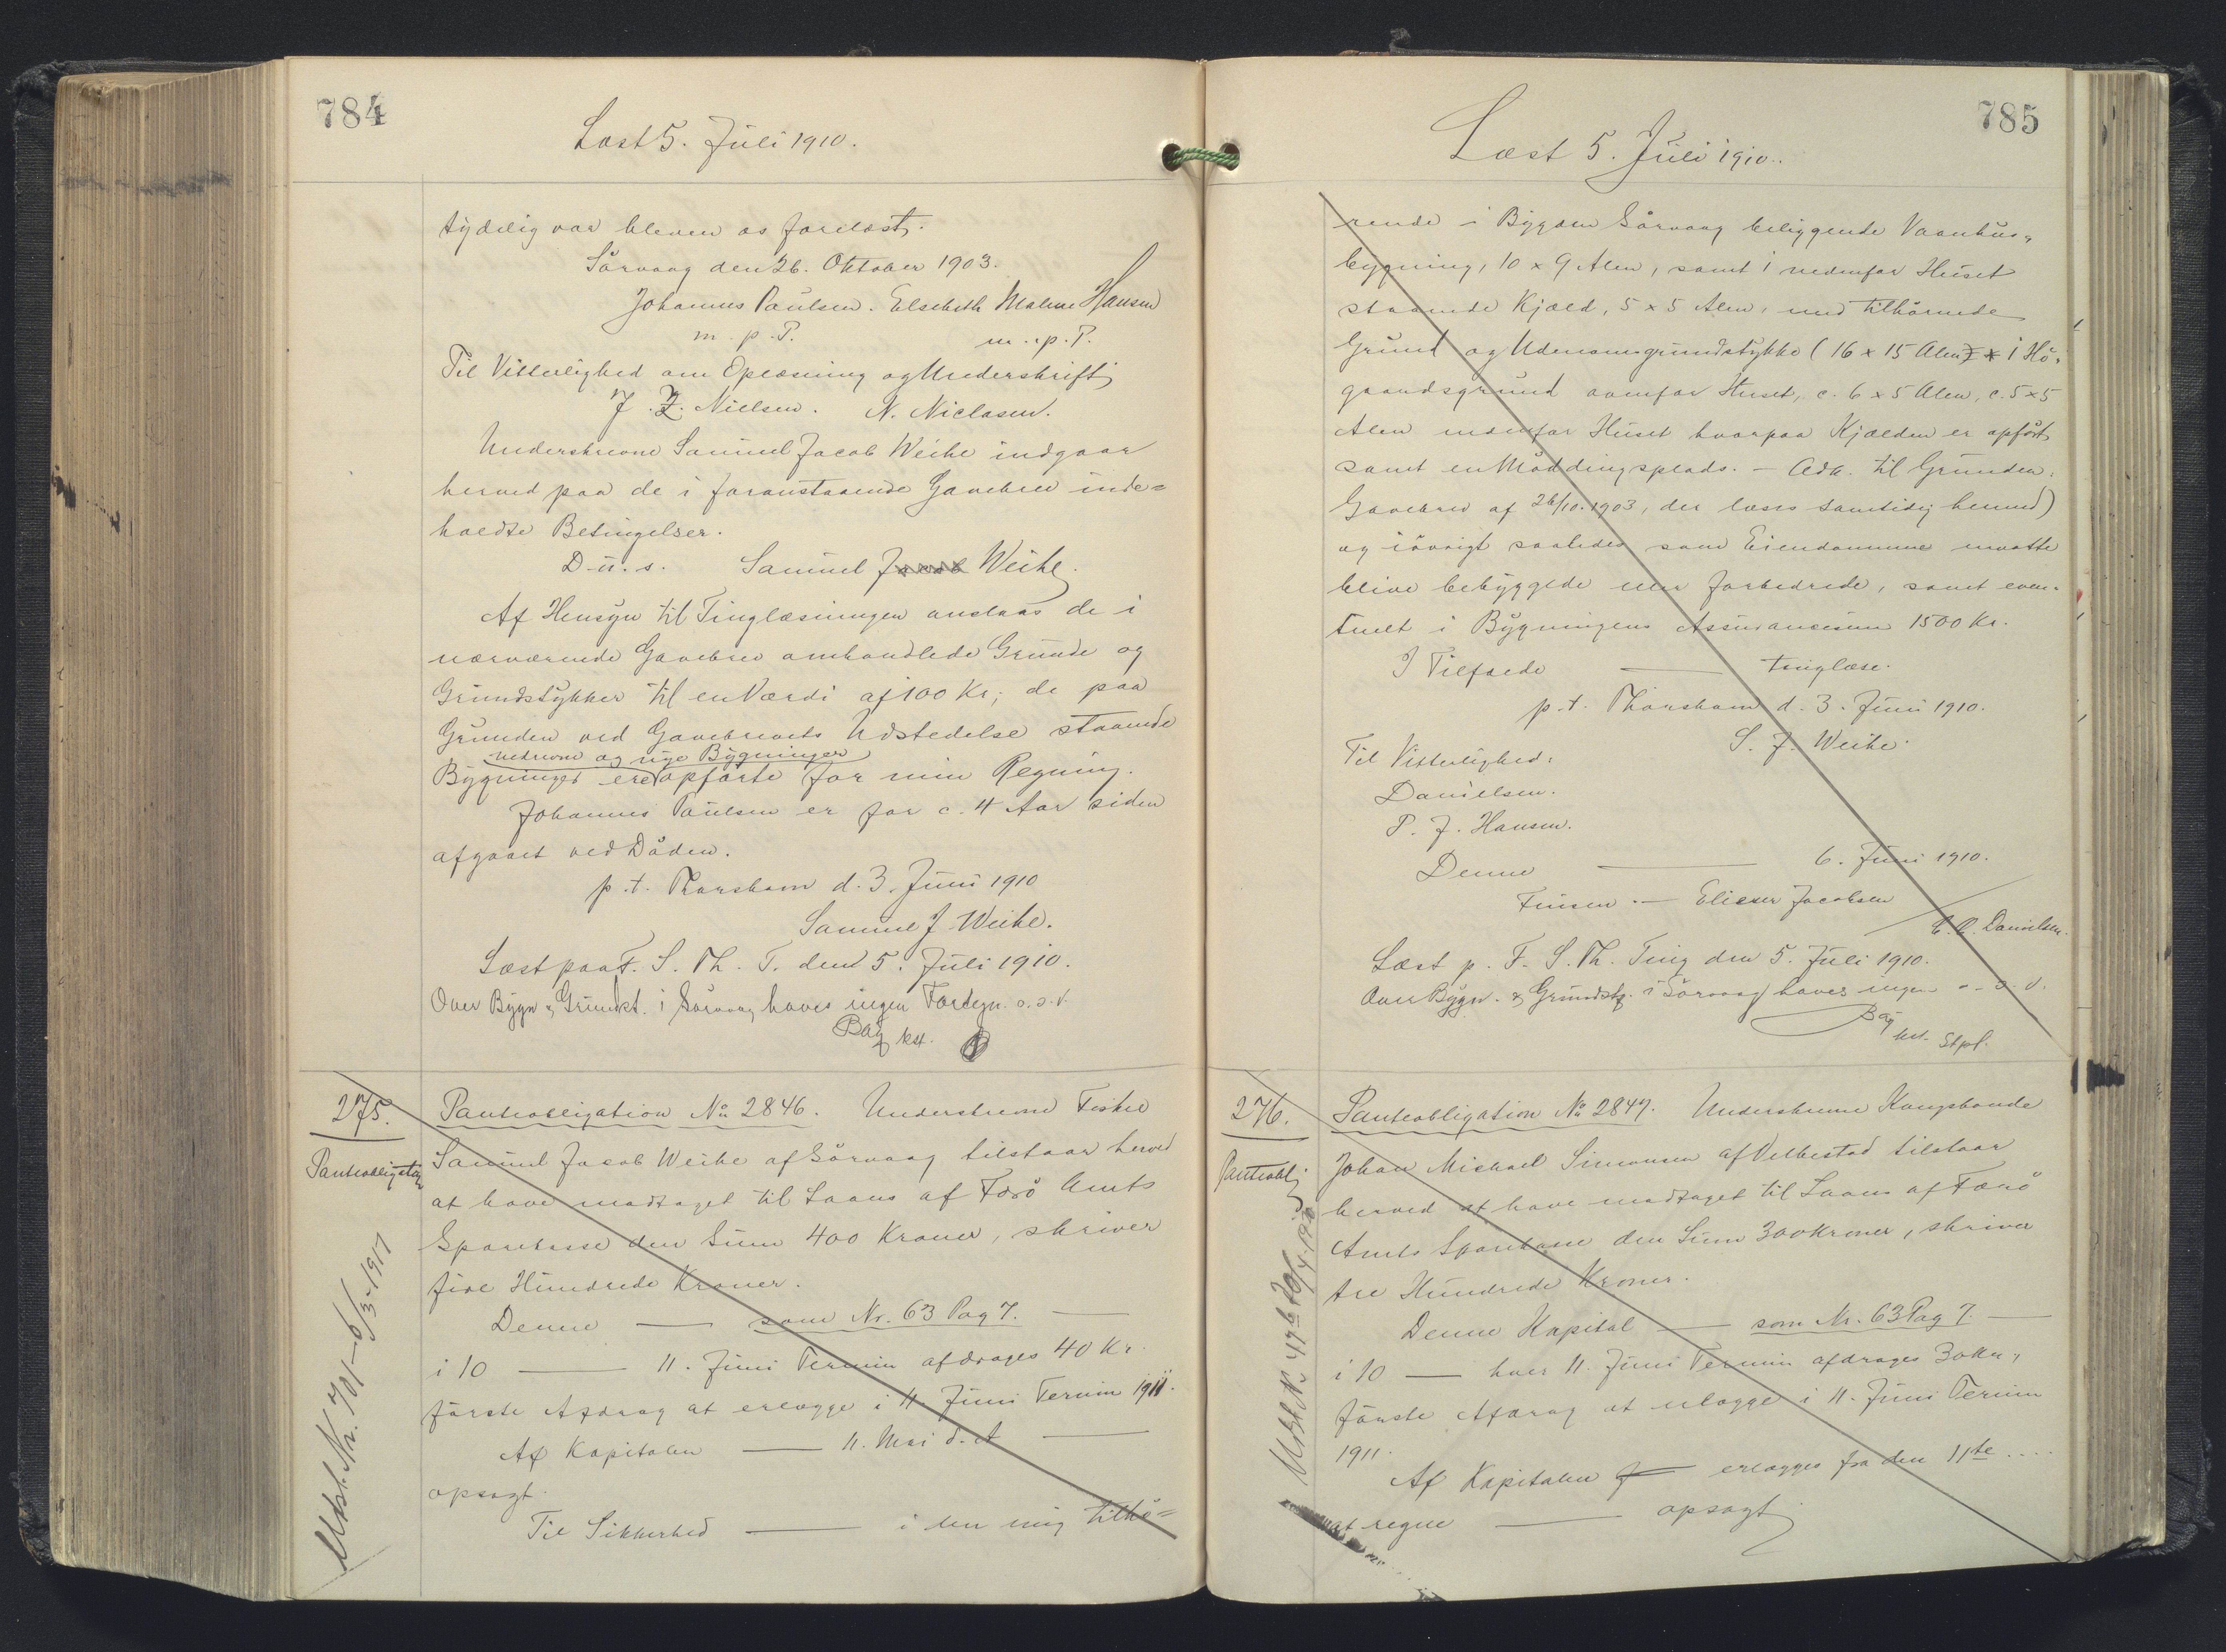 784
Læst 5. Juli 1910.
tydelig var bleven os forelæst.
Sörvaag den 26. Oktober 1903.
Johannes Paulsen. Elsebeth Malene Hansen
m. p. P. m. p. P.
Til Vitterlighed om Oplæsning og Underskrift
J. Z. Nielsen. N. Niclasen.
Underskrevne Samuel Jacob Weihe indgaar
herved paa de i foranstaaende Gavebrev inde=
holdte Betingelser.
D. u. s. Samuel Jacob Weihe.
Af Hensyn til Tinglæsningen anslaas de i
nærværende Gavebrev omhandlede Grunde og
Grundstykker til en Værdi af 100 Kr; de paa
Grunden ved Gavebrevets Udstedelse staaende
nedrevne og nye Bygninger
Bygninger ere opförte for min Regning.
Johannes Paulsen er for c. 4 Aar siden
afgaaet ved Döden.
p. t. Thorshavn d. 3. Juni 1910
Samuel J. Weihe.
Læst paa F. S. Th. T. den 5. Juli 1910.
Over Bygn & Grundst. i Sörvaag haves ingen Foregn. o. s. v.
Bay kst.
275.
Panteobligation
Pantobligation No 2846. Underskrevne Fisker
Samuel Jacob Weihe af Sörvaag tilstaar herved
at have modtaget til Laans af Færö Amts
Sparekasse den Sum 400 Kroner, skriver
fire Hundrede Kroner.
Denne — som Nr. 63 Pag 7. —
i 10 — 11. Juni Termin afdrages 40 Kr.
förste Afdrag at erlægge i 11. Juni Termin 1911.
Af Kapitalen — 11. Mai d. A —
opsagt.
Til Sikkerhed — i den mig tilhö=
Udsl. Nr. 701 - 6/3-1917
785
Læst 5. Juli 1910.
rende i Bygden Sörvaag beliggende Vaanhus=
bygning, 10 x 9 Alen, samt i nedenfor Huset
staaende Kjæld, 5 x 5 Alen, med tilhörende
Grund og Udenomsgrundstykke (16 x 15 Alen) x i Hö=
gaardsgrund ovenfor Huset, c. 6 x 5 Alen, c. 5 x 5
Alen nedenfor Huset hvorpaa Kjælden er opfört
samt en Möddingsplads. - Adk. til Grunden:
Gavebrev af 26/10. 1903, der læses samtidig hermed)
og iövrigt saaledes som Eiendommene maatte
blive bebyggede eller forbedrede, samt even=
tuelt i Bygningens Assurancesum 1500 Kr.
I Tilfælde — tinglæse.
p. t. Thorshavn d. 3. Juni 1910.
S. J. Weihe.
Til Vitterlighed:
Danielsen.
P. J. Hansen.
Denne — 6. Juni 1910.
Finsen. — Elieser Jacobsen
Danielsen.
Læst p. F. S. Th. Ting den 5. Juli 1910.
Over Bygn. & Grundstk. i Sörvaag haves ingen o. s. v.
Bay
kst. Stpl.
276.
Panteobl
Panteobligation No 2847. Underskrevne Kongsbonde
Johan Michael Simonsen af Velbestad tilstaar
herved at have modtaget til Laans af Færö
Amts Sparekasse den Sum 300 Kroner, skriver
tre Hundrede Kroner.
Denne Kapital — som Nr. 63 Pag 7. —
i 10 — hver 11. Juni Termin afdrages 30 Kr,
förste Afdrag at erlægge i 11. Juni Termin
1911.
Af Kapitalen — erlægges fra den 11te ....
at regne — opsagt